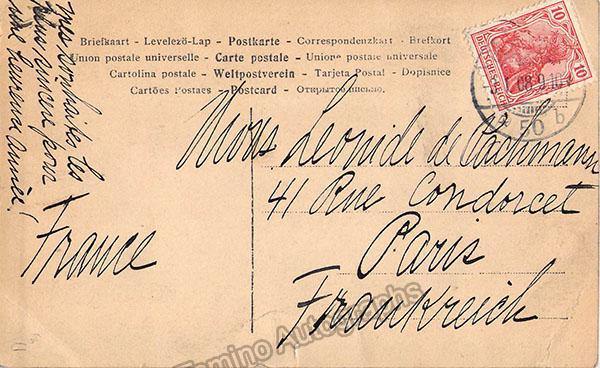 Briefkaart - Levelező-Lap - Postkarte - Correspondenzkart - Brefkort
Union postale universelle - Carte postale - Union postale universale
Cartolina postale - Weltpostverein - Tarjeta Postal - Dopisnice
Cartões Postaes - Postcard - Открытое письмо.
10 10
DEUTSCHES REICH
08.9-10
50 b
Mes souhaits les
plus sincères pour
une heureuse année!
France
Mons Leonide de Pachmann
41 Rue Condorcet
Paris
Frankreich
Tamino Autographs